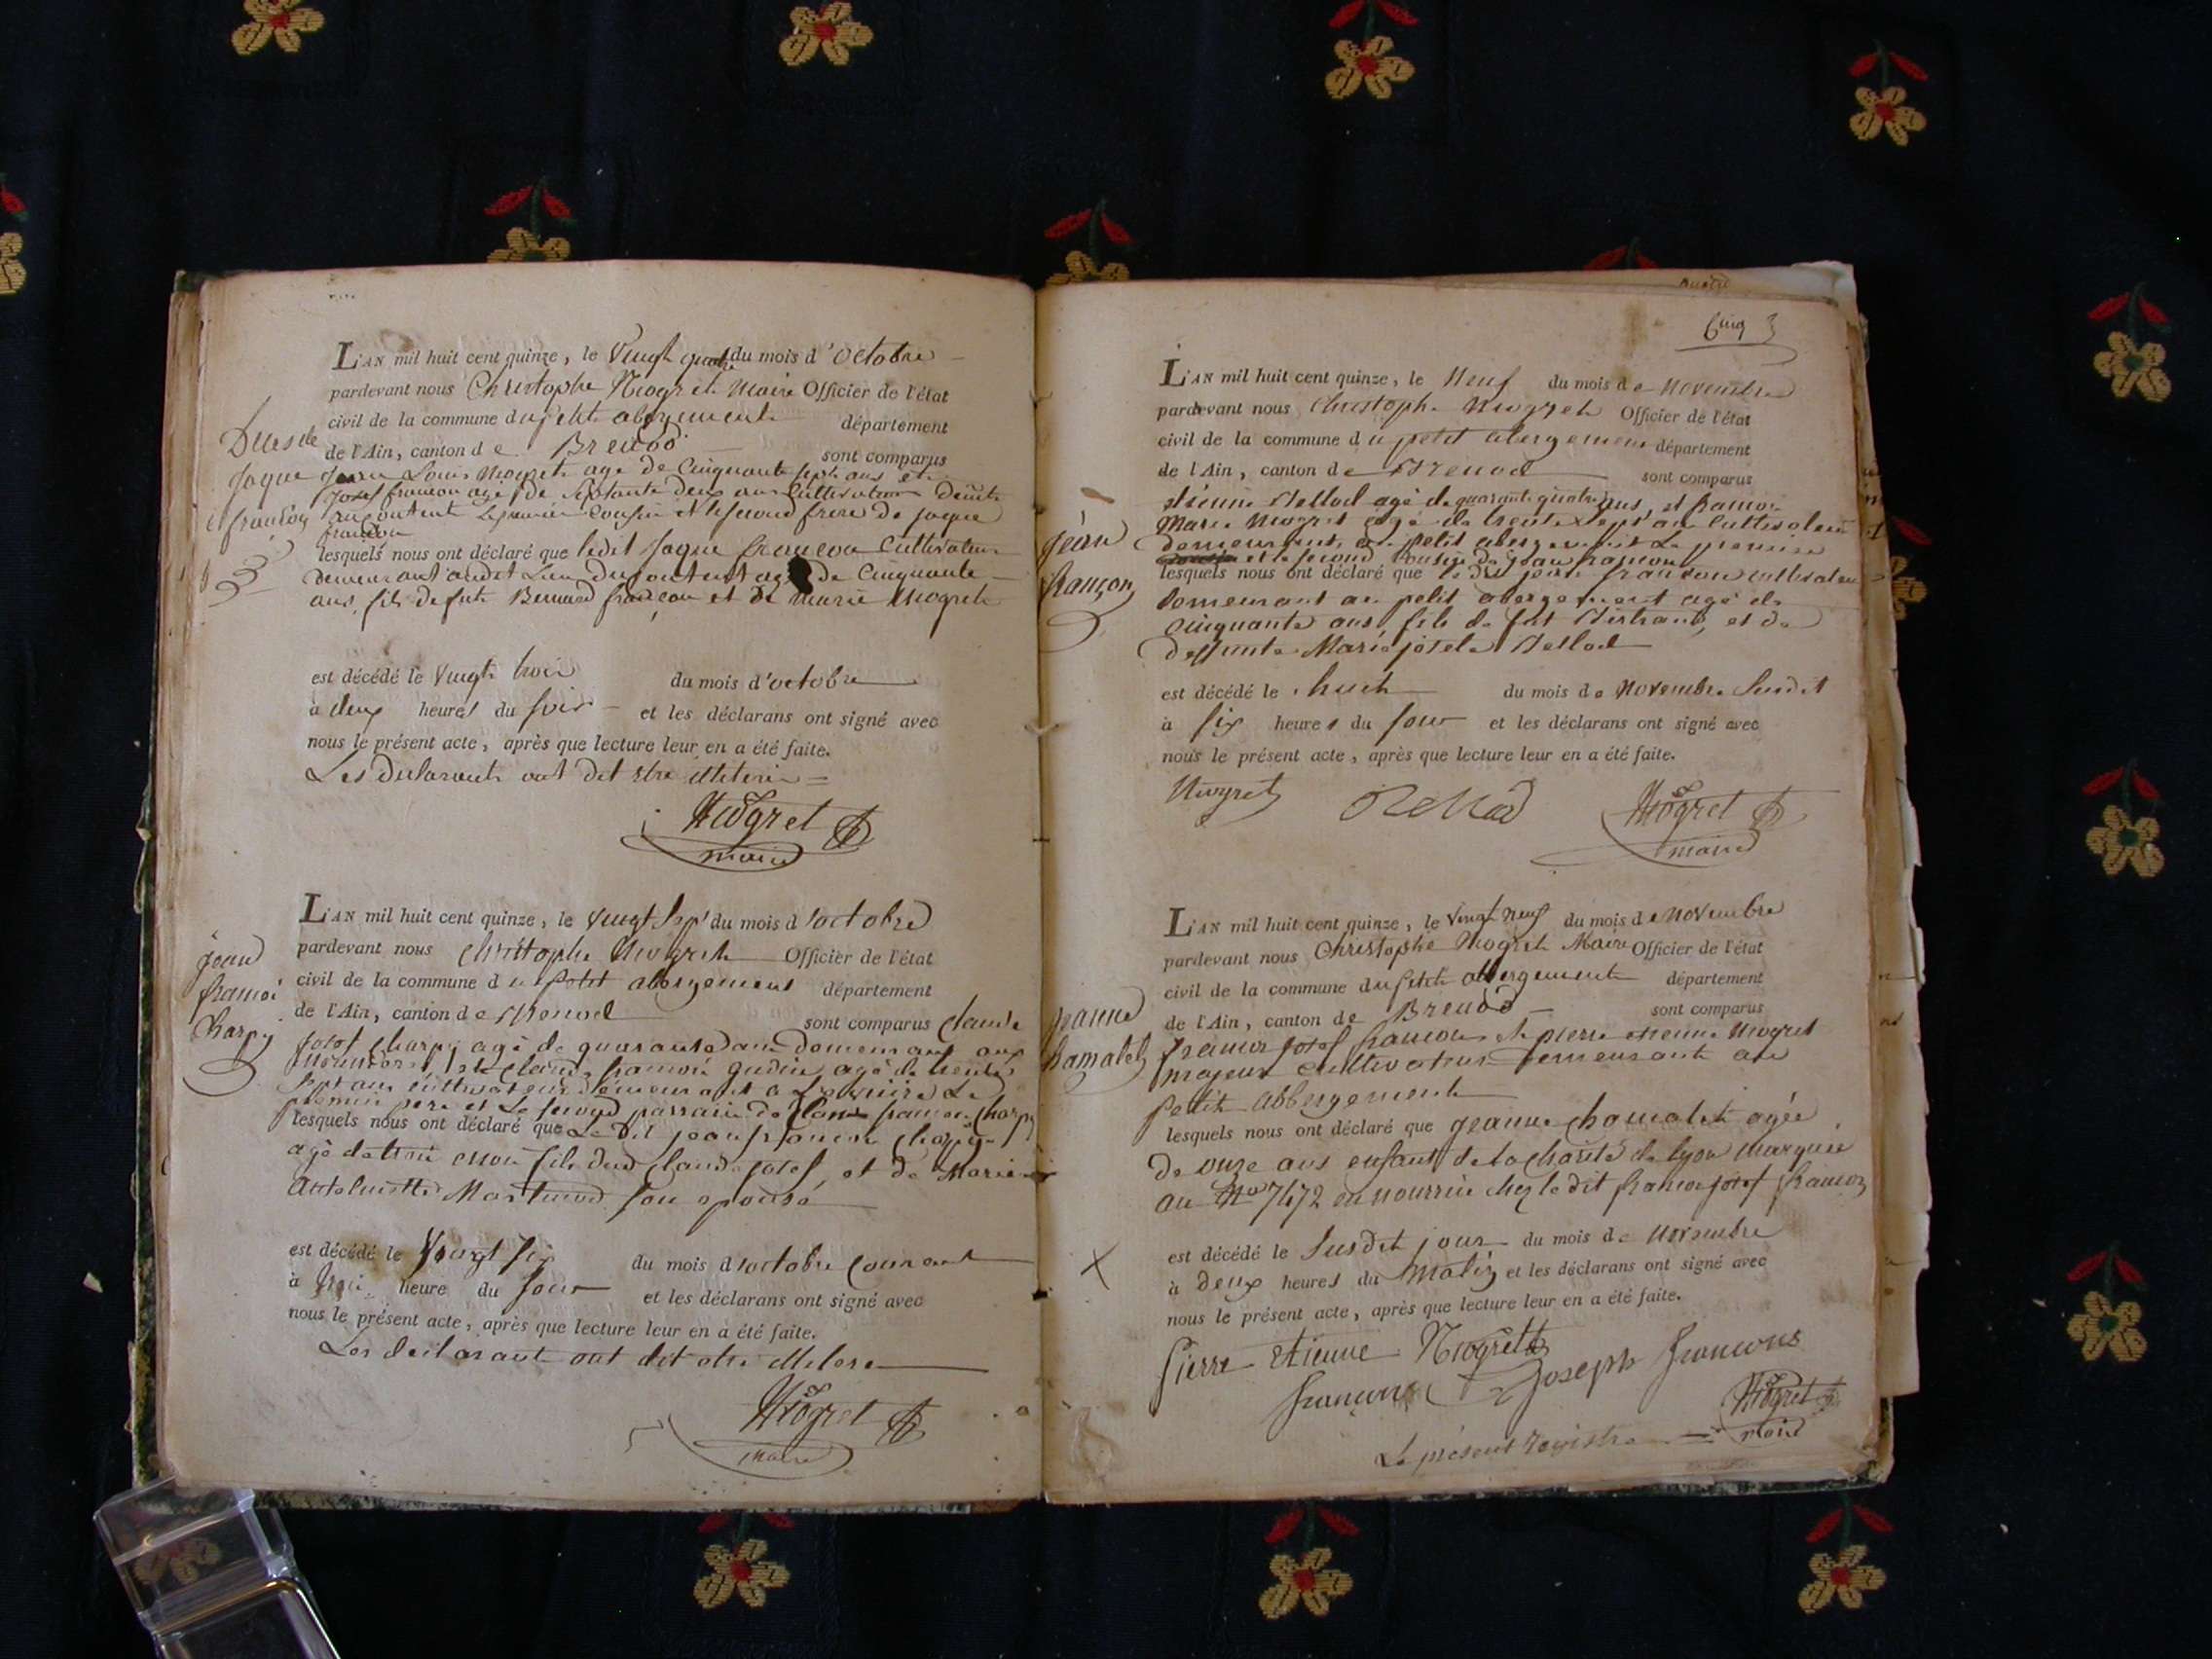 L'AN mil huit cent quinze, le Vingt quatre du mois d'octobre
pardevant nous Christophe Niogret Maire Officier de l'état
civil de la commune du petit abergement département
de l'Ain, canton de Brenod sont comparus
Louis Niogret age de Cinquante sept ans et
Josef françon agé de Septante deux ans Cultivateurs
Le premier Cousin et le second frere de jaque
françon
lesquels nous ont déclaré que ledit Jaque françon Cultivateur
demeurant audit Lieu agé de Cinquante
ans, fils de fut Bernard françon et de marie Niogret
est décédé le vingt trois du mois d'octobre
à deux heures du soir et les déclarans ont signé avec
nous le présent acte, après que lecture leur en a été faite.
Les declarants ont dit etre
Niogret
maire
Jaque
françon
L'AN mil huit cent quinze, le vingt sept du mois d'octobre
pardevant nous christophe Niogret Officier de l'état
civil de la commune du petit abergement département
de l'Ain, canton de Brenod sont comparus claude
josef charpy agé de quarante demeurant aux
et claude françois agé de trente
sept ans cultivateurs demeurant a Le
premier pere et Le second parrain de françois charpy
lesquels nous ont déclaré que Le dit jean françois charpy
agé de trois mois fils dud claude josef, et de Marie
Antoinette son epouse
est décédé le vingt six du mois d'octobre courant
à trois heure du jour et les déclarans ont signé avec
nous le présent acte, après que lecture leur en a été faite.
Les declarants ont dit etre
Niogret
maire
jean
françoi
Charpy
Cinq
L'AN mil huit cent quinze, le Neuf du mois de Novembre
pardevant nous christophe Niogret Officier de l'état
civil de la commune du petit abergement département
de l'Ain, canton de Brenod sont comparus
étienne Bellod agé de quarante quatre ans, et françois
Marie Niogret agé de trente sept ans Cultivateurs
demeurant, au petit abergement Le premier
et le second Cousin de jean françon
lesquels nous ont déclaré que le dit jean françon cultivateur
demeurant au petit abergement agé de
cinquante ans, fils de fut Bertrand, et de
deffunte Marie josete Bellod
est décédé le huit du mois de Novembre susdit
à six heures du jour et les déclarans ont signé avec
nous le présent acte, après que lecture leur en a été faite.
Niogret Bellod Niogret
maire
jean
françon
L'AN mil huit cent quinze, le Vingt neuf du mois de Novembre
pardevant nous Christophe Niogret Maire Officier de l'état
civil de la commune du petit abbergement département
de l'Ain, canton de Brenod sont comparus
françois josef françon et pierre etienne Niogret
majeurs cultivateurs demeurant au
petit abbergement
lesquels nous ont déclaré que jeanne chamalet agée
de onze ans enfant de la charité de lyon marquée
au No 7472 en nourrice chez ledit françois josef françon
est décédé le susdit jour du mois de Novembre
à deux heures du matin et les déclarans ont signé avec
nous le présent acte, après que lecture leur en a été faite.
Pierre Etienne Niogret
françois Joseph françons
Niogret
maire
Le présent registre
jeanne
hamalet